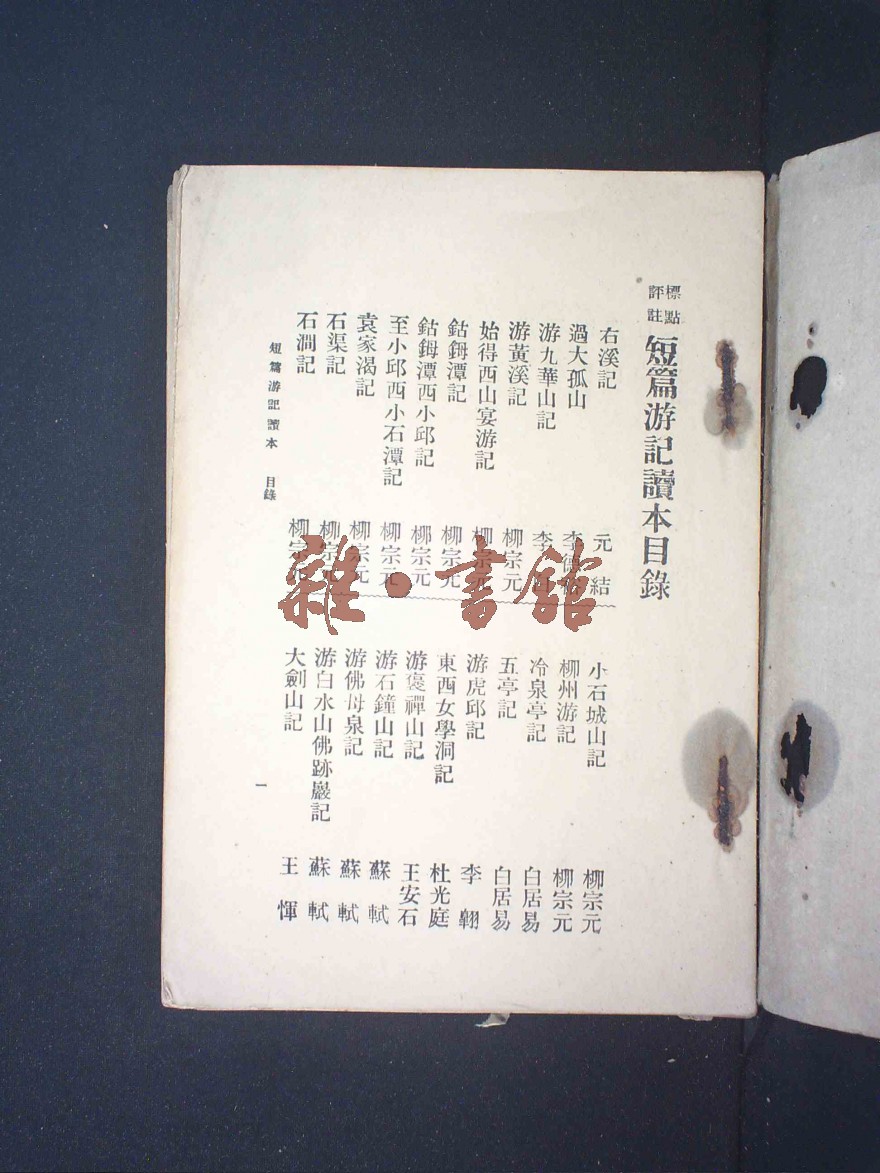 標點評註 短篇游記讀本目錄
右溪記 元結
過大孤山 李德裕
游九華山記 李
游黃溪記 柳宗元
始得西山宴游記 柳宗元
鈷鉧潭記 柳宗元
鈷鉧潭西小邱記 柳宗元
至小邱西小石潭記 柳宗元
袁家渴記 柳宗元
石渠記 柳宗元
石澗記 柳宗元
小石城山記 柳宗元
柳州游記 柳宗元
冷泉亭記 白居易
五亭記 白居易
游虎邱記 李翱
東西女學洞記 杜光庭
游褒禪山記 王安石
游石鐘山記 蘇軾
游佛母泉記 蘇軾
游白水山佛跡巖記 蘇軾
大劍山記 王惲
短篇游記讀本 目錄
一
雜·書館